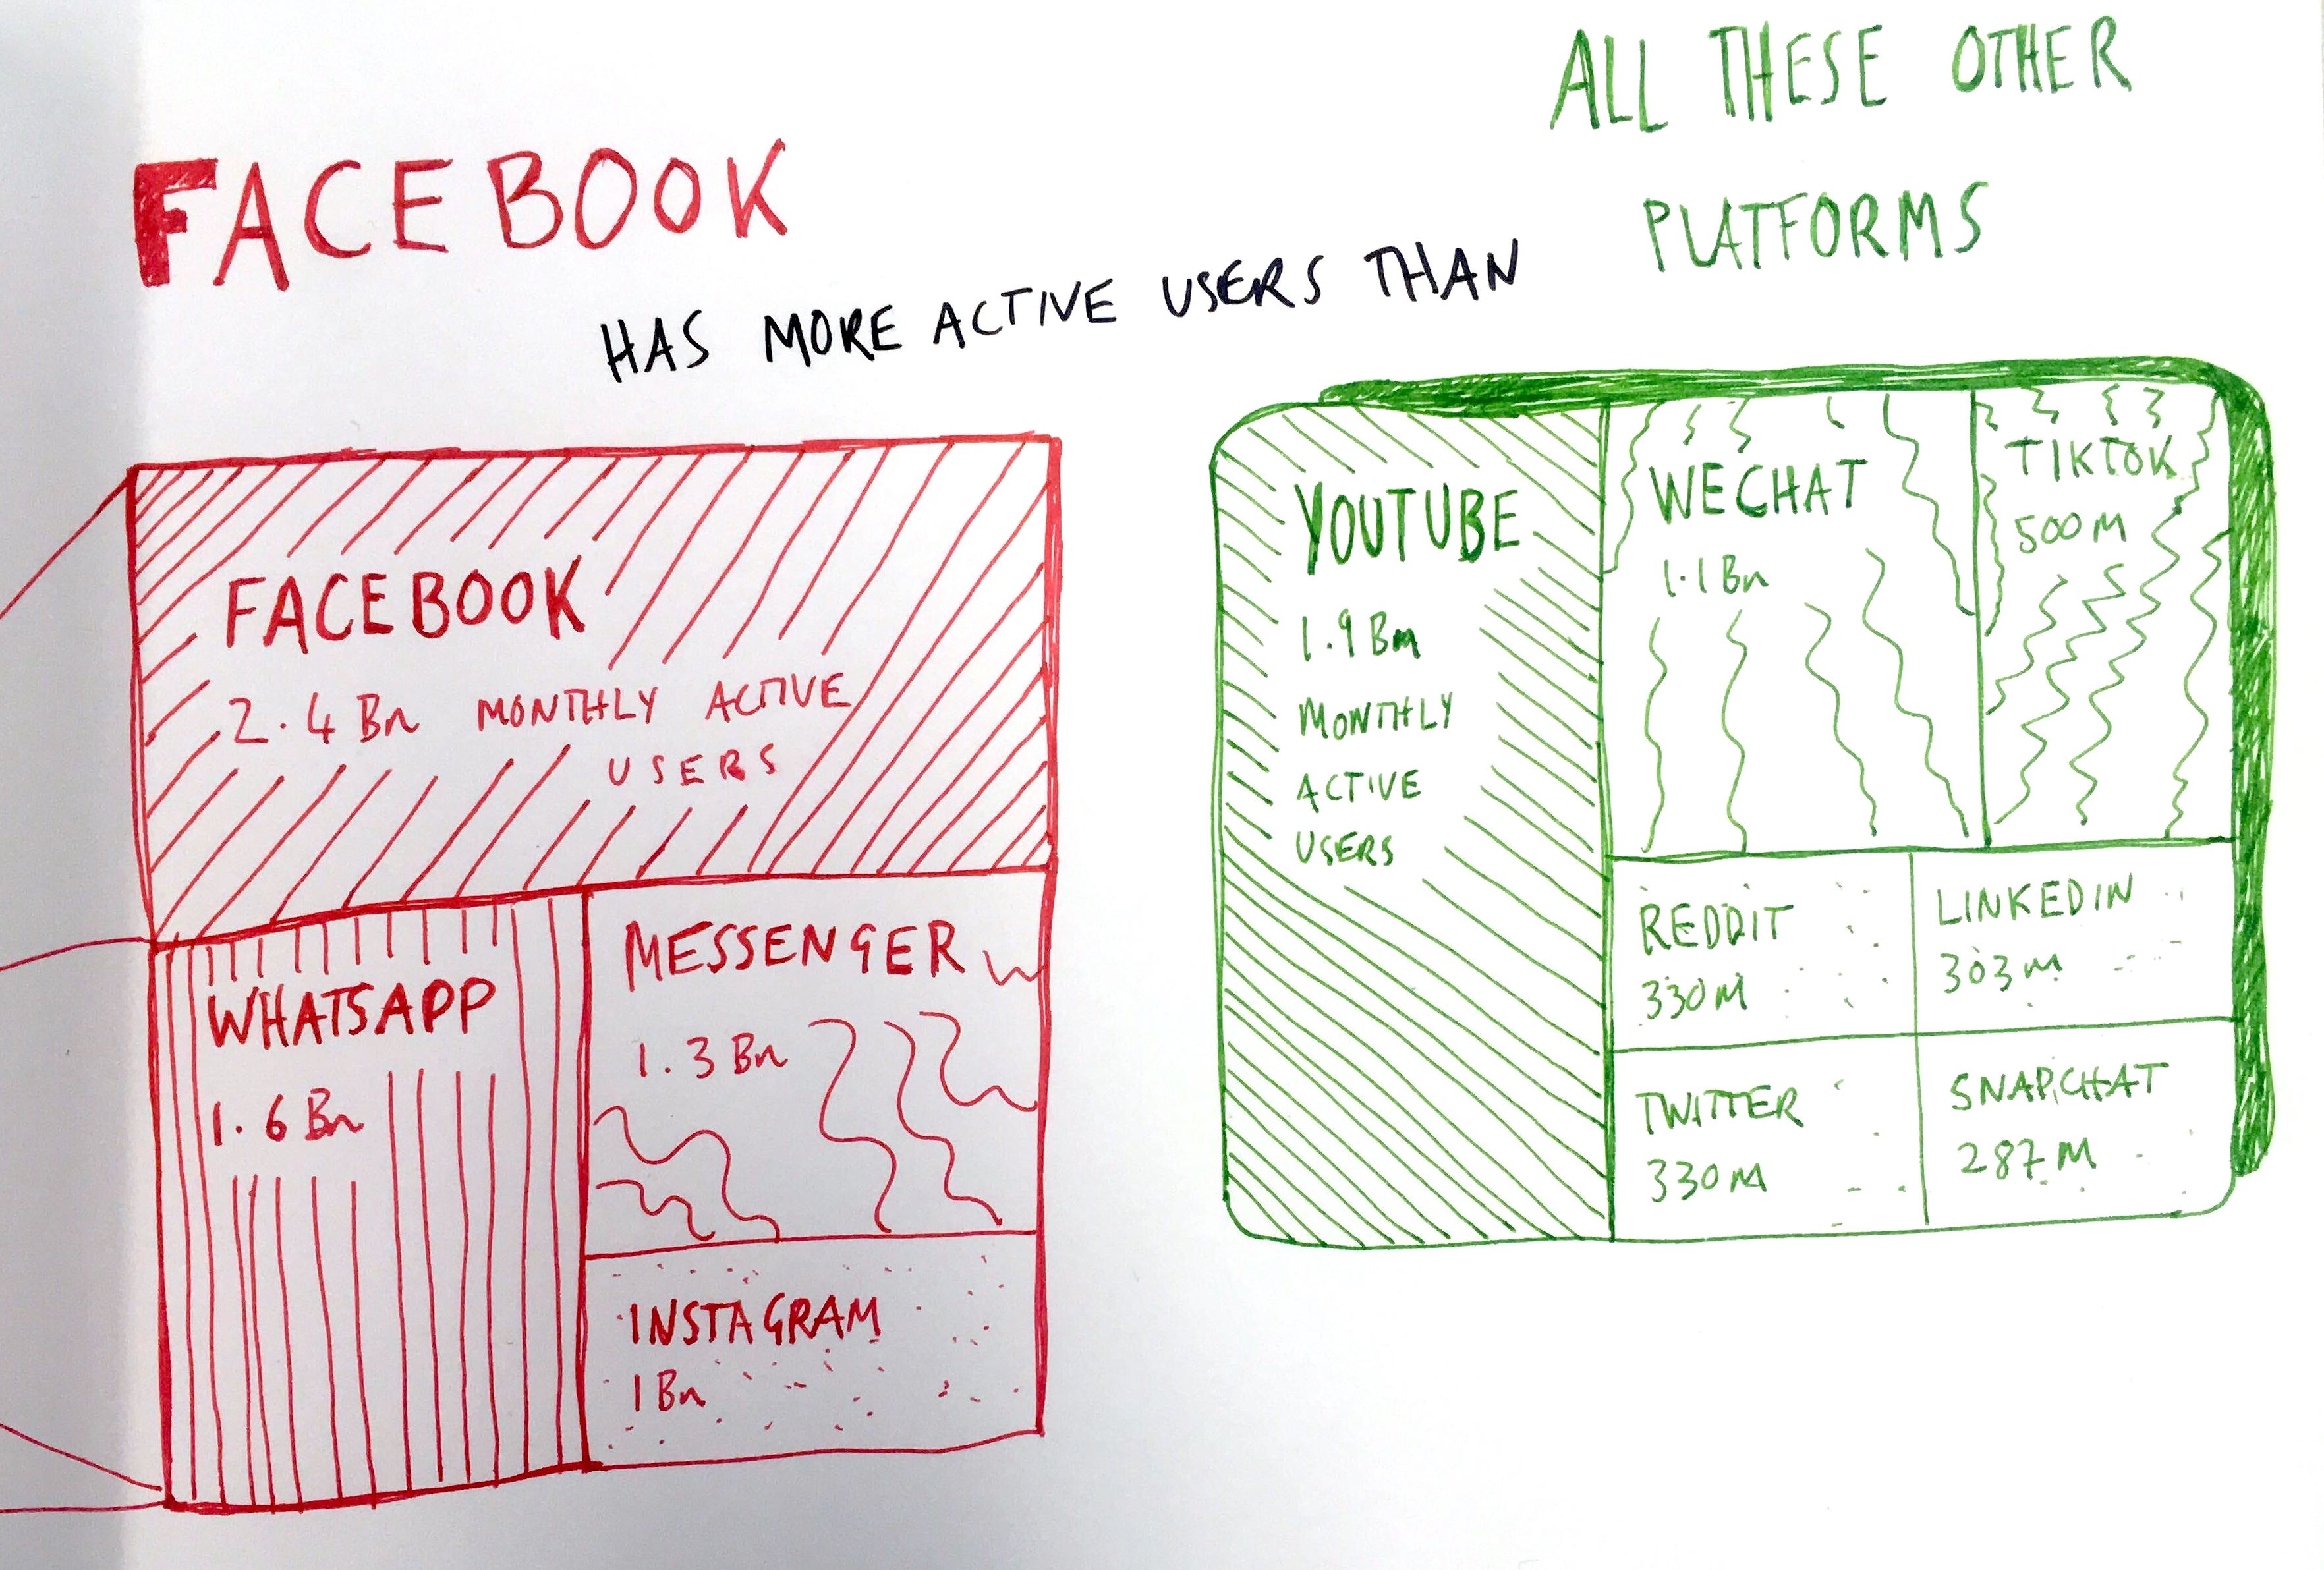 FACEBOOK
HAS MORE ACTIVE USERS THAN
ALL THESE OTHER
PLATFORMS
FACEBOOK
2.4 Bn MONTHLY ACTIVE
USERS
WHATSAPP
1.6 Bn
MESSENGER
1.3 Bn
INSTAGRAM
1 Bn
YOUTUBE
1.9 Bn
MONTHLY
ACTIVE
USERS
WECHAT
1.1 Bn
TIKTOK
500 M
REDDIT
330 M
LINKEDIN
303 M
TWITTER
330 M
SNAPCHAT
287 M